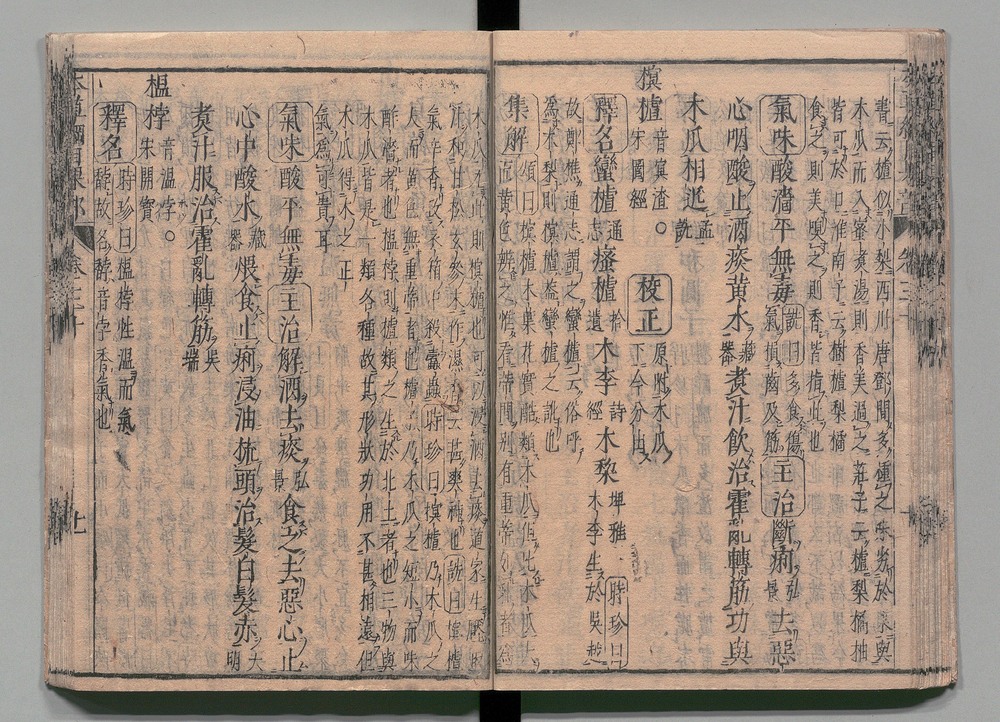 書云樝似小梨西川唐鄧間多種之味劣於梨與
木瓜而入蜜煮湯則香美過之莊子云樝梨橘柚
皆可於口淮南子云樹樝梨橘
食之則美嗅之則香皆指此也
氣味酸濇平無毒詵曰多食傷氣損齒及筋主治斷痢弘景去惡
心咽酸止酒痰黃水藏器煮汁飲治霍亂轉筋功與
木瓜相近孟詵
榠樝音冥渣。宋圖經校正原附木瓜下今分出
釋名蠻樝通志瘙樝拾遺木李詩經木梨埤雅時珍曰木李生於吳越
故鄭樵通志謂之蠻樝云俗呼
為木梨則榠樝蓋蠻樝之訛也
集解頌曰榠樝木葉花實酷類木瓜但比木瓜大
而黃色辨之惟看蔕間別有重蔕如乳者為
木瓜無此則榠樝也可以浸酒去痰道家生壓取
汁和甘松玄參末作濕香云甚爽神也詵曰榠樝
氣辛香致衣箱中殺蠹蟲時珍曰榠樝乃木瓜之
大而黃色無重蔕者也樝子乃木瓜之短小而味
酢濇者也榅桲則樝類之生於北土者也三物與
木瓜皆是一類各種故其形狀功用不甚相遠但
木瓜得木之正
氣為可貴耳
氣味酸平無毒主治解酒去痰弘景食之去惡心止
心中酸水藏器煨食止痢浸油梳頭治髮白髮赤大明
煮汁服治霍亂轉筋吳瑞
榅桲音溫孛。宋開寶
釋名時珍曰榅桲性溫而氣
馞故名馞音孛香氣也